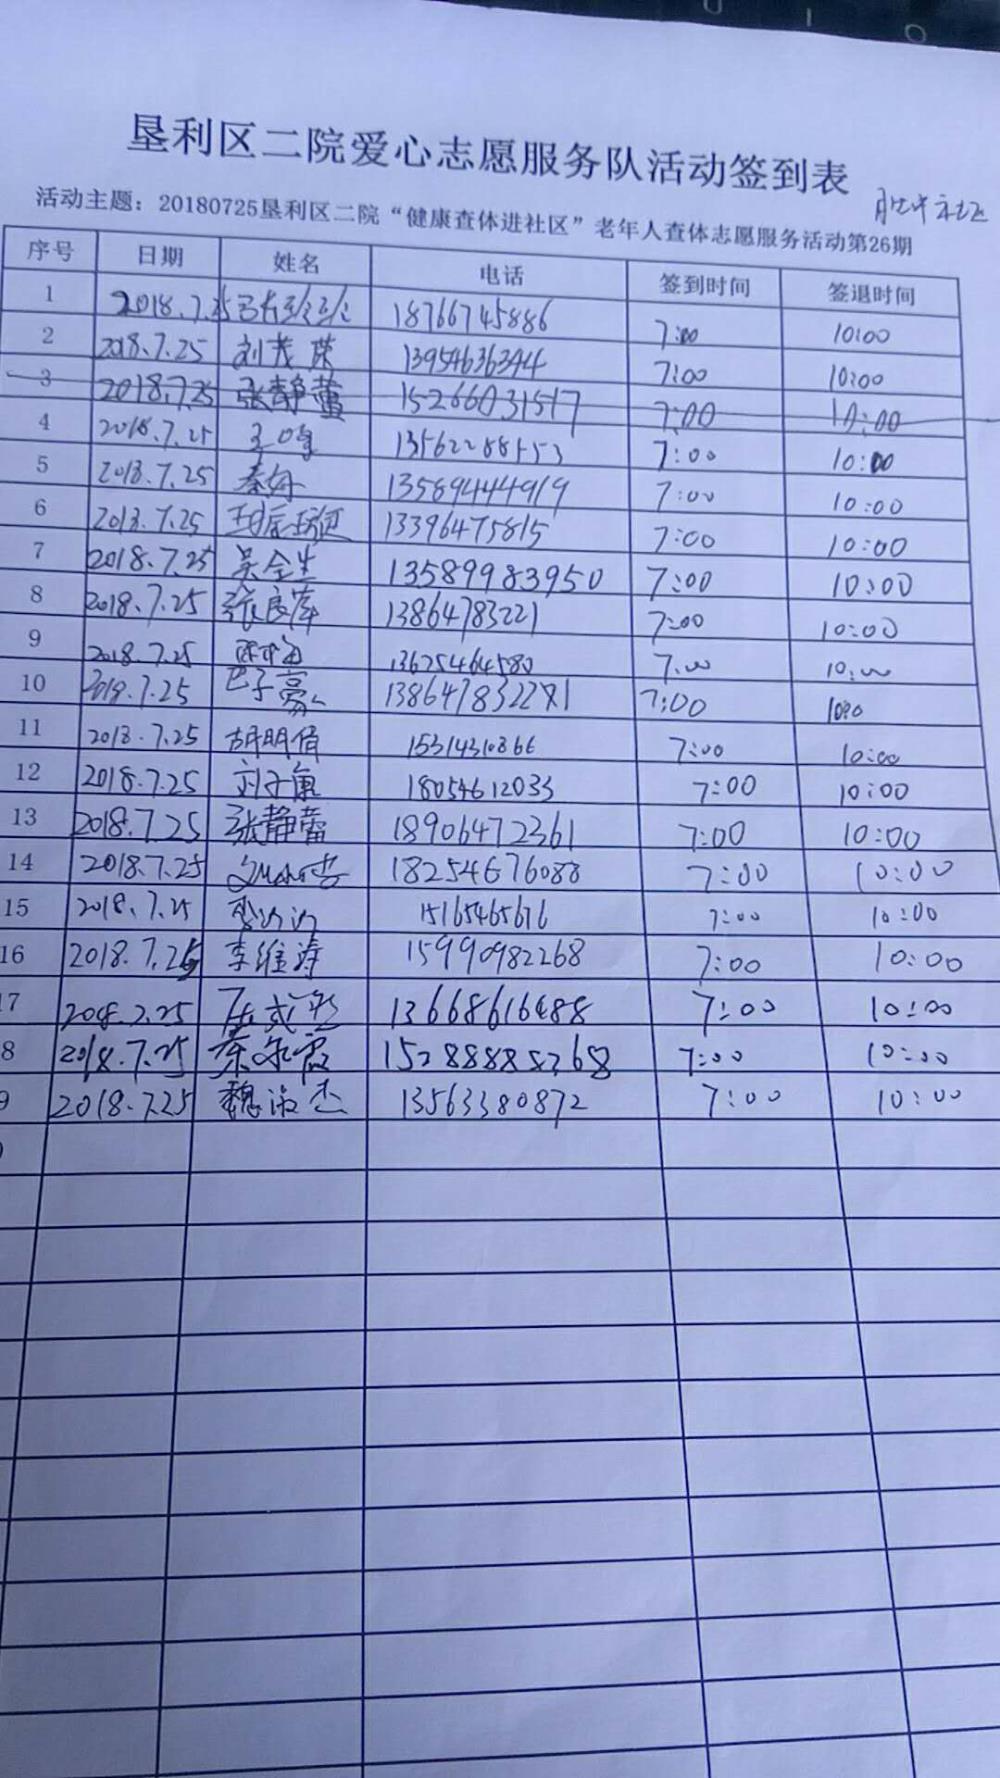 垦利区二院爱心志愿服务队活动签到表
胜中社区
活动主题：20180725垦利区二院“健康查体进社区”老年人查体志愿服务活动第26期
序号 日期 姓名 电话 签到时间 签退时间
1 2018.7.25 18766745886 7:00 10:00
2 2018.7.25 刘茂荣 13954636344 7:00 10:00
3 2018.7.25 张静蕾 15266031517 7:00 10:00
4 2018.7.25 13562288553 7:00 10:00
5 2018.7.25 秦娟 13589444919 7:00 10:00
6 2018.7.25 13396475815 7:00 10:00
7 2018.7.25 吴全生 13589983950 7:00 10:00
8 2018.7.25 张良库 13864783221 7:00 10:00
9 2018.7.25 13625464580 7:00 10:00
10 2018.7.25 巴子豪 7:00
11 2018.7.25 胡明倩 15314310866 7:00 10:00
12 2018.7.25 刘子康 18054612033 7:00 10:00
13 2018.7.25 张静蕾 18906472361 7:00 10:00
14 2018.7.25 18254676088 7:00 10:00
15 2018.7.25 15165465676 7:00 10:00
16 2018.7.25 李维涛 15990982268 7:00 10:00
7 2018.7.25 13668616488 7:00 10:00
8 2018.7.25 秦永霞 7:00 10:00
9 2018.7.25 魏淑杰 13563380872 7:00 10:00